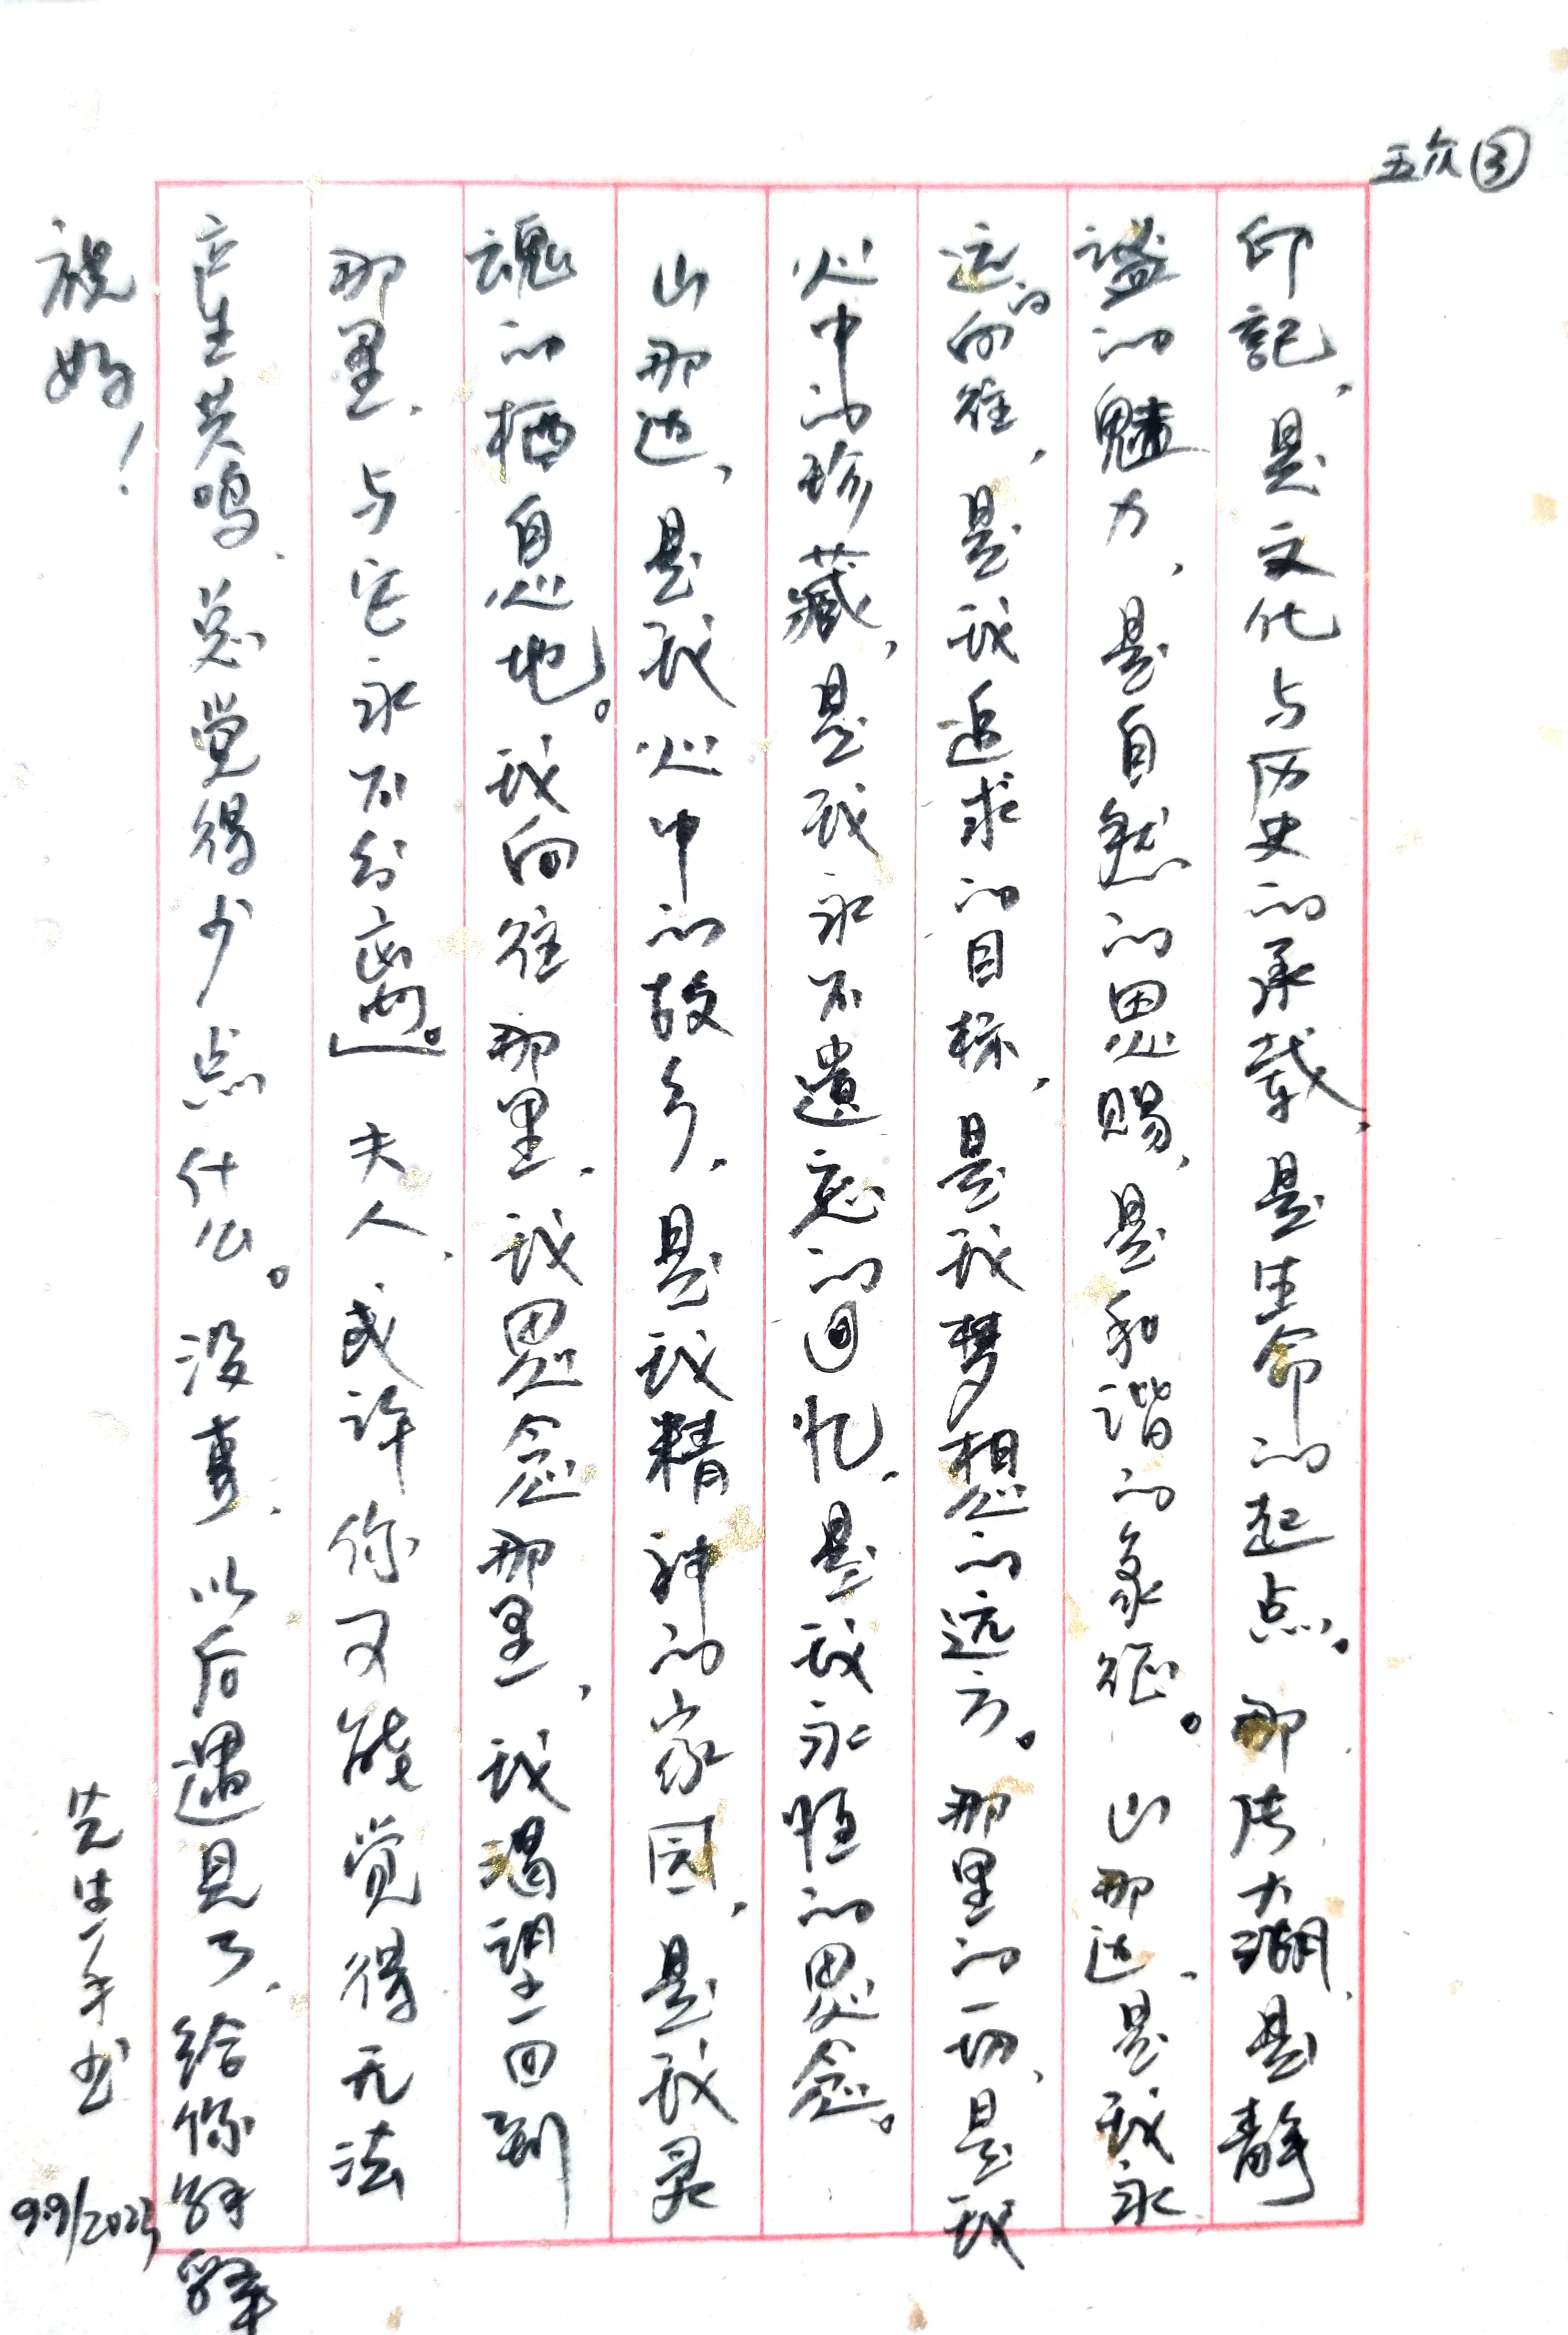 五众③
印記，是文化与历史的承载，是生命的起点。那片大湖，是静
谧的魅力，是自然的恩赐，是和谐的象征。山那边，是我永
远的向往，是我追求的目标，是我梦想的远方。那里的一切，是我
心中的珍藏，是我永不遗忘的回忆，是我永恒的思念。
山那边，是我心中的故乡，是我精神的家园，是我灵
魂的栖息地。我向往那里，我思念那里，我渴望回到
那里，与它永不分离。」夫人，或许你又能觉得无法
产生共鸣，总觉得少点什么。没事，以后遇见了，给你解释
祝好！
先生手书
9.9/2023